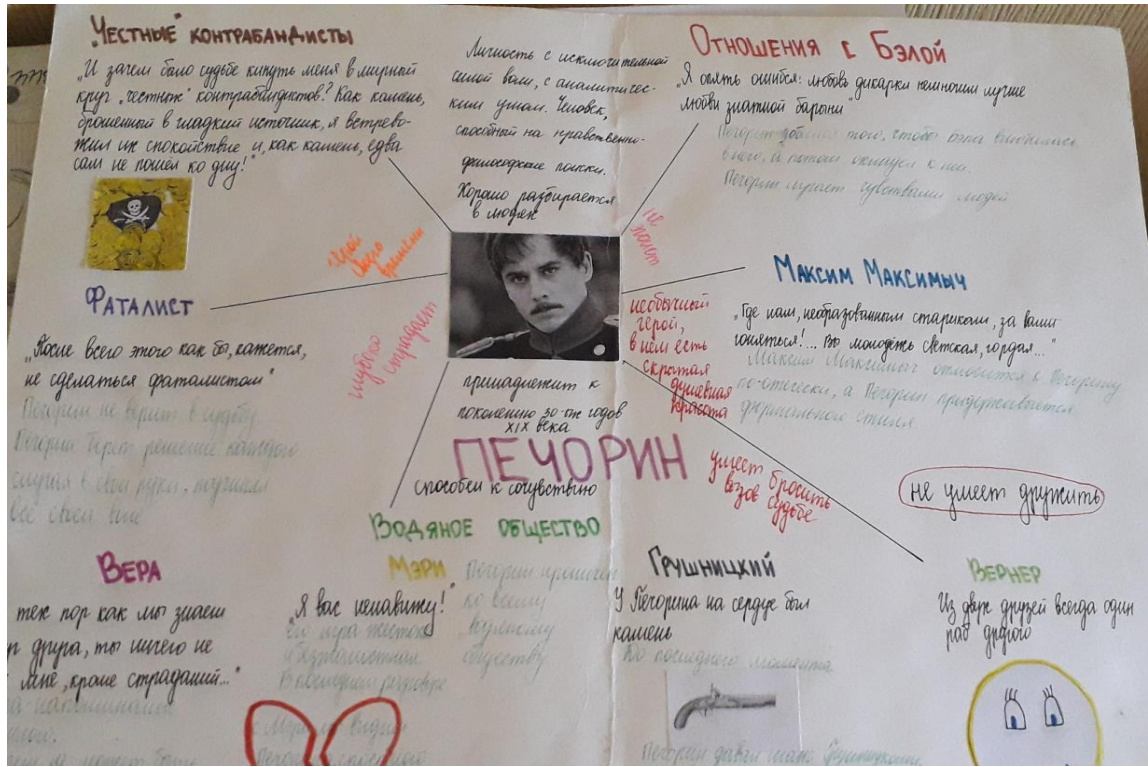 "Честные" контрабандисты
"И зачем было судьбе кинуть меня в мирный
круг "честных" контрабандистов? Как камень,
брошенный в гладкий источник, я встрево-
жил их спокойствие и, как камень, едва
сам не пошёл ко дну!"
Личность с исключительной
силой воли, с аналитичес-
ким умом. Человек,
способный на нравственно-
философские поиски.
Хорошо разбирается
в людях
Отношения с Бэлой
"Я опять ошибся: любовь дикарки немногим лучше
любви знатной барыни"
Печорин добился того, чтобы Бэла влюбилась
в него, а потом охладел к ней.
Печорин играет чувствами людей
герой
своего
времени
не
понят
Фаталист
"После всего этого как бы, кажется,
не сделаться фаталистом"
Печорин не верит в судьбу
Печорин берёт решение каждого
случая в свои руки, подчиняя
всё своей воле
глубоко
страдает
Максим Максимыч
"Где нам, необразованным старикам, за вами
гоняться!... Вы молодежь светская, гордая..."
Максим Максимыч относится к Печорину
по-отечески, а Печорин придерживается
формального стиля
необычный
герой,
в нем есть
скрытая
душевная
красота
принадлежит к
поколению 30-ых годов
XIX века
ПЕЧОРИН
способен к сочувствию
умеет бросить
вызов судьбе
не умеет дружить
Водяное общество
Вера
тех пор как мы знаем
друга, ты ничего не
мне, кроме страданий..."
Мэри
"Я вас ненавижу!"
Его игра жестока
и безжалостна
В последнем разговоре
с Мэри видим
Печорин
ко всему
водяному
обществу
Грушницкий
У Печорина на сердце был
камень
До последнего момента
Печорин давал шанс Грушницкому
Вернер
Из двух друзей всегда один
раб другого